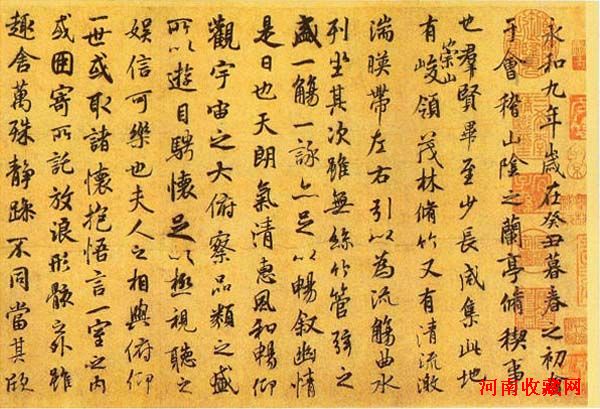 永和九年歲在癸丑暮春之初會
于會稽山陰之蘭亭脩禊事
也羣賢畢至少長咸集此地
有崇山峻領茂林脩竹又有清流激
湍暎帶左右引以為流觴曲水
列坐其次雖無絲竹管弦之
盛一觴一詠亦足以暢叙幽情
是日也天朗氣清惠風和暢仰
觀宇宙之大俯察品類之盛
所以遊目騁懷足以極視聽之
娛信可樂也夫人之相與俯仰
一世或取諸懷抱悟言一室之內
或因寄所託放浪形骸之外雖
趣舍萬殊靜躁不同當其欣
河南收藏网